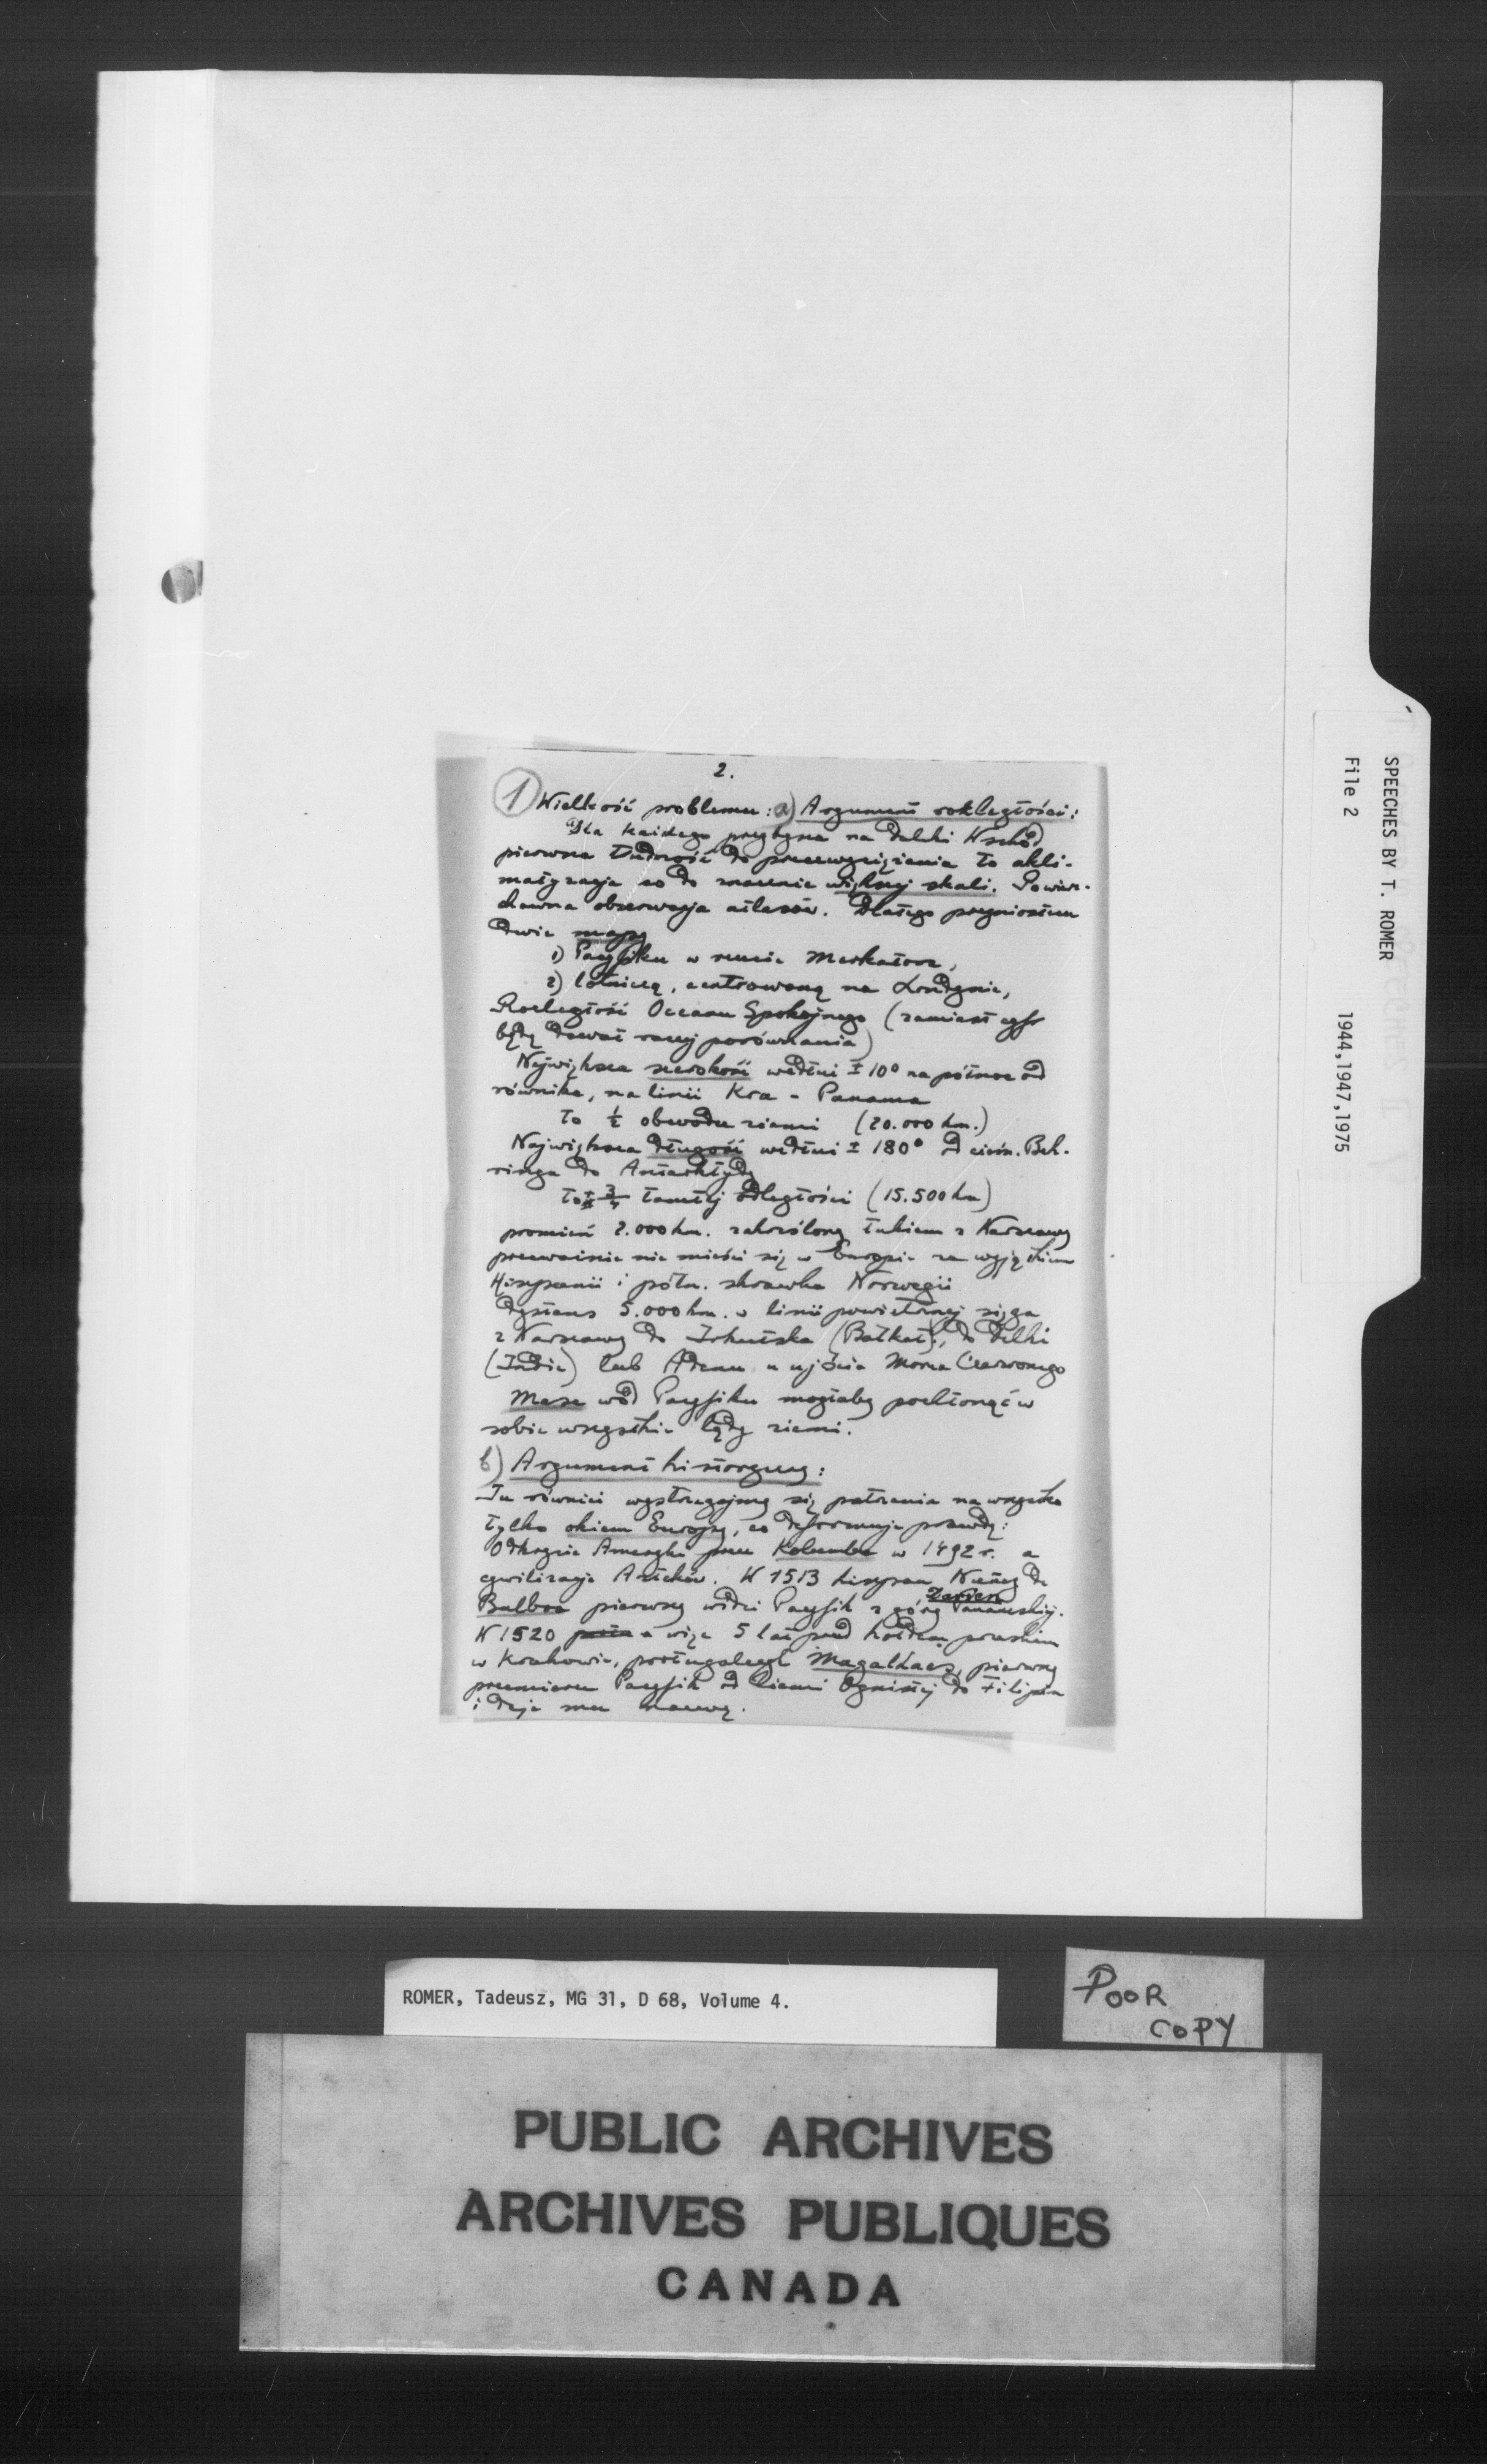 2.
1 Wielkość problemu: a) Argument rozległości:
Dla każdego przybysza na Daleki Wschód
pierwsza trudność do przezwyciężenia to akli-
matyzacja co do znacznie większej skali. Powierz-
chowna obserwacja atlasów. Dlatego przyniosłem
dwie mapy
1) Pacyfiku w rzucie Merkatora,
2) lotniczą, centrowaną na Londynie,
Rozległość Oceanu Spokojnego (zamiast cyfr
będę dawał raczej porównania)
Największa szerokość wedłuż ± 10° na północ od
równika, na linii Kra - Panama
to ½ obwodu ziemi (20.000 km.)
Największa długość wedłuż ± 180° od cieśn. Beh-
ringa do Antarktydy
to ± 3/4 tamtej odległości (15.500 km)
promień 2.000 km. zakreślony łukiem z Warszawy
przeważnie nie mieści się w Europie za wyjątkiem
Hiszpanii i półn. skrawka Norwegii
Dystans 5.000 km. w linii powietrznej sięga
z Warszawy do Irkutska (Bajkał), do Delhi
(Indie) lub Adenu u ujścia Morza Czerwonego
Masa wód Pacyfiku mogłaby pochłonąć w
sobie wszystkie lądy ziemi.
b) Argument historyczny:
Tu również wystrzegajmy się patrzenia na wszystko
tylko okiem Europy, co deformuje prawdę:
Odkrycie Ameryki przez Kolumba w 1492 r. a
cywilizacja Azteków. W 1513 hiszpan Nuñez de
Balboa pierwszy widzi Pacyfik z góry Panamskiej.
Darien
W 1520 a więc 5 lat przed hołdem pruskim
w Krakowie, portugalczyk Magalhaes, pierwszy
przemierza Pacyfik od Ziemi Ognistej do Filipin
i daje mu nazwę.
SPEECHES BY T. ROMER 1944,1947,1975
File 2
ROMER, Tadeusz, MG 31, D 68, Volume 4.
POOR
COPY
PUBLIC ARCHIVES
ARCHIVES PUBLIQUES
CANADA